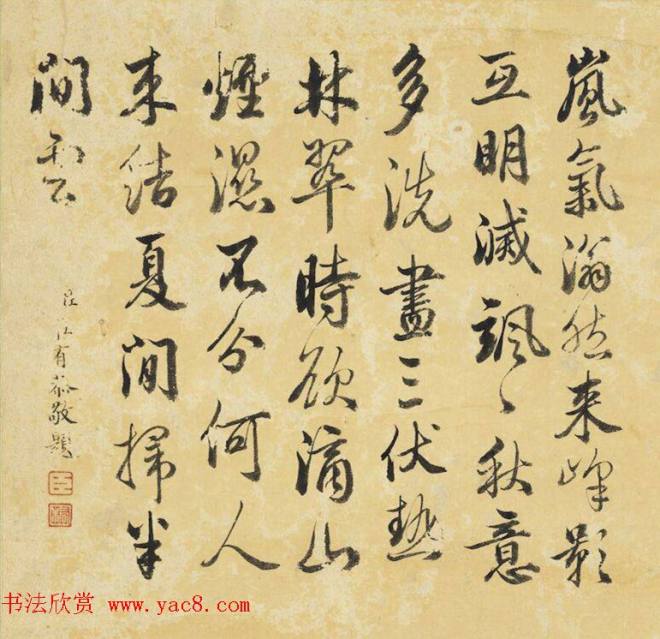 嵐氣滃然来峰影
互明滅颯〻秋意
多洗盡三伏熱
林翠時欲滴山
煙濕不分何人
来結夏閒掃半
間雲
臣莊有恭敬題
臣
书法欣赏 www.yac8.com